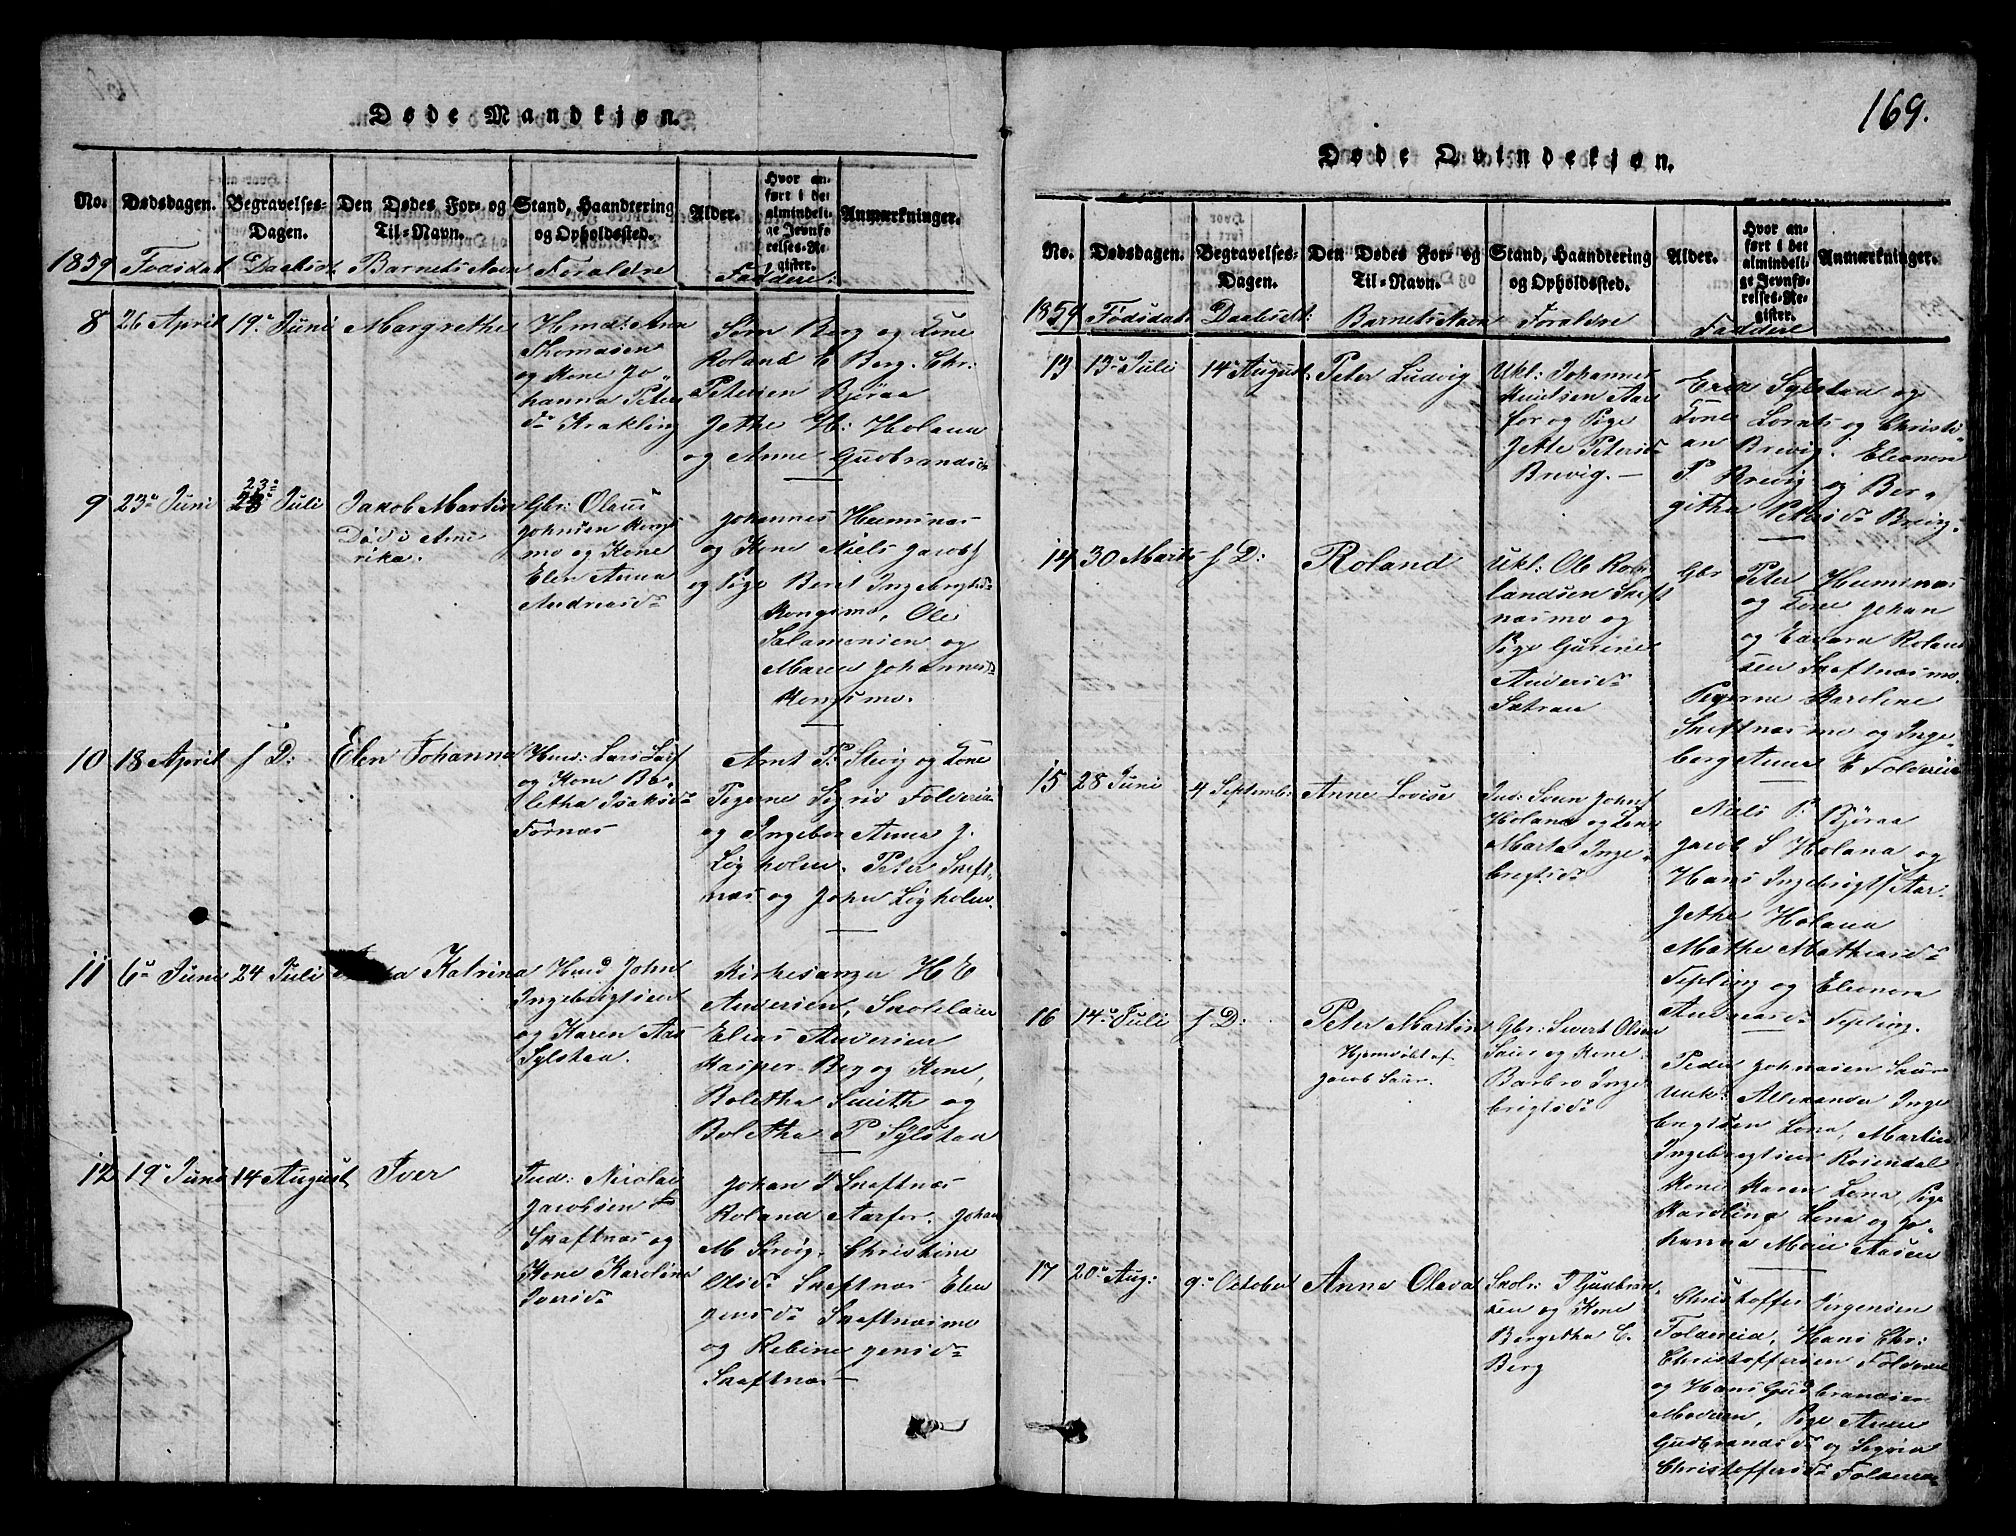 Døde Mandkjøn.
No. Dødsdagen. Begravelses-Dagen. Den Dødes For- og Til-Navn. Stand, Haandtering og Opholdssted. Alder. Hvor anført i det almindelige Jevnførelses-Register. Anmærkninger.
1859 Fødsdat Daabsdt Barnets Navn Foraldre Faddere:
8 26 April 19de Juni Margrethe
Hmd: Arn
Thomasen
og Kone Jo-
hanna Peters
dr Krakling
Sørn Berg og Kone
Roland C Berg. Chr:
Petersen Bjøraa
Jethe H: Holand
og Anne Gudbrandsdr
9 23de Juni 23de Juli Jakob Martin
Død i Ame
rika.
Gbr: Olaus
Johnsen Kongs
mo og Kone
Elen Anna
Andreasdr
Johannes Heemsnæs
og Kone Niels Jacobs
og Pige Beret Ingebrigtsdr
Kongsmo, Ole
Salamonsen og
Maren Johannesdr
Kongsmo.
10 18 April f D: Elen Johanna
Hmd: Lars
og Kone Be-
letha Isaksdr
Fornæs
Arnt P. og Kone
Pigerne Sigrid Foldereid
og Ingebor Anna J.
Ligholm. Peter Skeft-
næs og John Ligholm.
11 6te Juni 24 Juli Katrina
Hmd John
Ingebrigtsen
og Karen Aas
Sylstad.
Kirkesanger H E
Andersen, Skolelærer
Elias Andersen
Kasper Berg og Kone,
Boletha Smith og
Boletha P Sylstad
12 19de Juni 14 August Iver
Ind: Nicolai
Jacobsen
Skaftnæs og
Kone Karolina
Iversdr
Johan I Skaftnæs
Roland Aarfor. Johan
M Sørvig. Christine
Olsdr Skaftnæs Elen
Jensdr Skaftnæsmo
og Rebine Jensdr
Skaftnæs
169.
Døde Qvindekjøn.
No. Dødsdagen. Begravelses-Dagen. Den Dødes For- og Til-Navn. Stand, Haandtering og Opholdssted. Alder. Hvor anført i det almindelige Jevnførelses-Register. Anmærkninger.
1859 Fødsdat Daabsdt: Barnets Navn Foraldre Faddere
13 13de Juli 14 August Peter Ludvig
Ukl: Johannes
Knudsen Aar
for og Pige
Jette Petersdr
Brevig.
Erik Sylstad og
Kone Lornts og Christi-
an Brevig. Eleonora
P Brevig og Ber-
githa Petersdr Brevig.
14 30 Marts f D: Roland
Ukl: Ole Ro-
landsen Skeft
næsmo og
Pige Gurine
Andersdr
Satran
Gbr Peter Heemsnæs
og Kone Johan
og Edvard Roland
sen Skeftnæsmo.
Pigerne Karoline
Skeftnæsmo og Inge-
borg Anna E Foldereid
15 28 Juni 4 Septemb: Anne Lovise
Ind: Sven Johns
Holand og Kone
Marta Inge-
brigtsdr
Niels P. Bjøraa
Jacob S Holand og
Hans Ingebrigts Aar.
Jethe Holand
Mathe Mathiasdr
Tepling og Eleonora
Andreasdr Tepling.
16 14de Juli f D: Peter Martin
Hjemdøbt af
Jacob Saur.
Gbr: Sivert Olsen
Saur og Kone
Barbro Inge
brigtsdr
Peder Johnsen Saur
Unk: Allexander Inge
brigtsen Lona, Martin
Ingebrigtsen Rosendal
Kone Karen Lona, Pige
Karolina Lona og Jo-
hanna Moe Aasen
17 20de Aug: 9de October Anna Oleva
Skolr: I Gudbran-
sen og Kone
Bergetha C.
Berg
Christoffer Jørgensen
Foldereid, Hans Chr:
Christoffersen Foldereid
og Hans Gudbrandsen
Moderen, Pige Anne
Gudbrandsdr og Segrid
Christoffersdr Foldereid